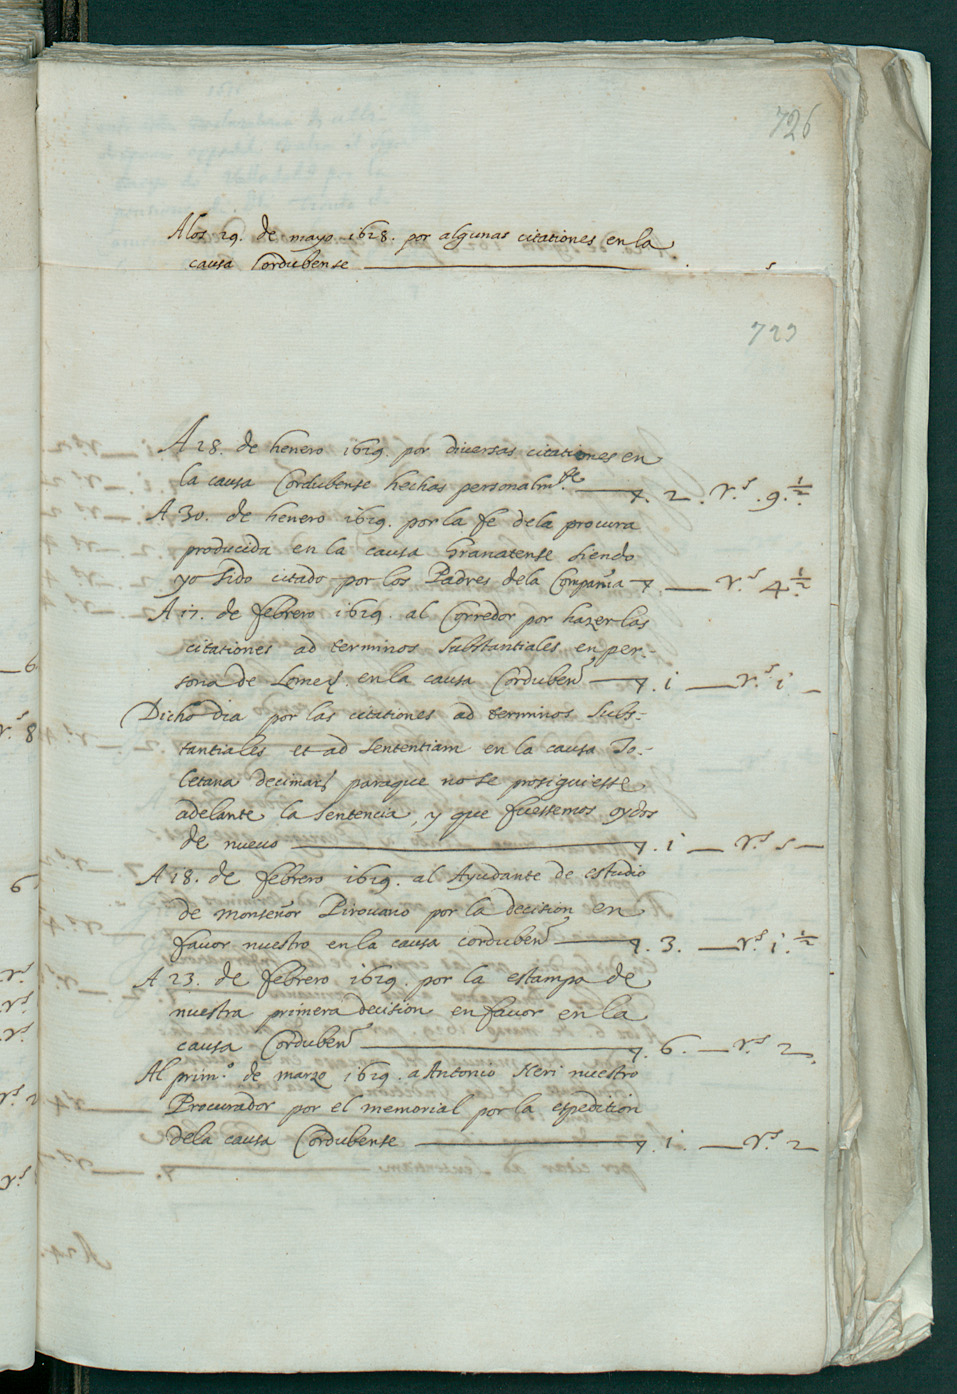 726
A los 29. de mayo 1628. por algunas citationes en la
causa Cordubense
723
A 28. de henero 1629. por diversas citationes en
la causa Cordubense hechas personalm.te 7. 2. rs. 9. ½
A 30. de henero 1629. por la fe dela procura
producida en la causa Granatense siendo
yo sido citado por los Padres dela Compañia 7 rs. 4 ½
A 17. de febrero 1629. al Corredor por hazer las
citationes ad terminos substantiales en per-
sona de en la causa Corduben 7. i rs. i
Dicho dia por las citationes ad terminos subs-
tantiales et ad sententiam en la causa To-
letana decimar paraque no se prosiguiesse
adelante la sentencia, y que fuessemos oydos
de nuevo 7. i rs. 5
A 18. de febrero 1629. al Ayudante de estudio
de Monseñor Pirovano por la decision en
favor nuestro en la causa corduben 7. 3. rs. i. ½
A 23. de febrero 1629. por la estampa de
nuestra primera decision en favor en la
causa Corduben 7. 6. rs. 2
Al prim.o de marzo 1629. a Antonio Neri nuestro
Procurador por el memorial por la espedition
dela causa Cordubense 7. i. rs. 2